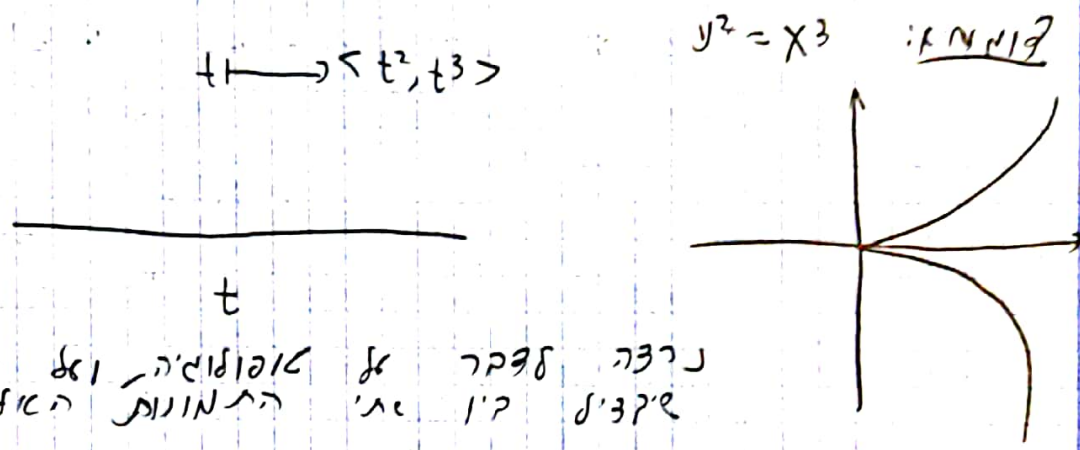 דוגמא: y² = x³
t ⟼ < t², t³ >
t
נרצה לדבר על טופולוגיה ועל
שיבדיל בין שתי התמונות